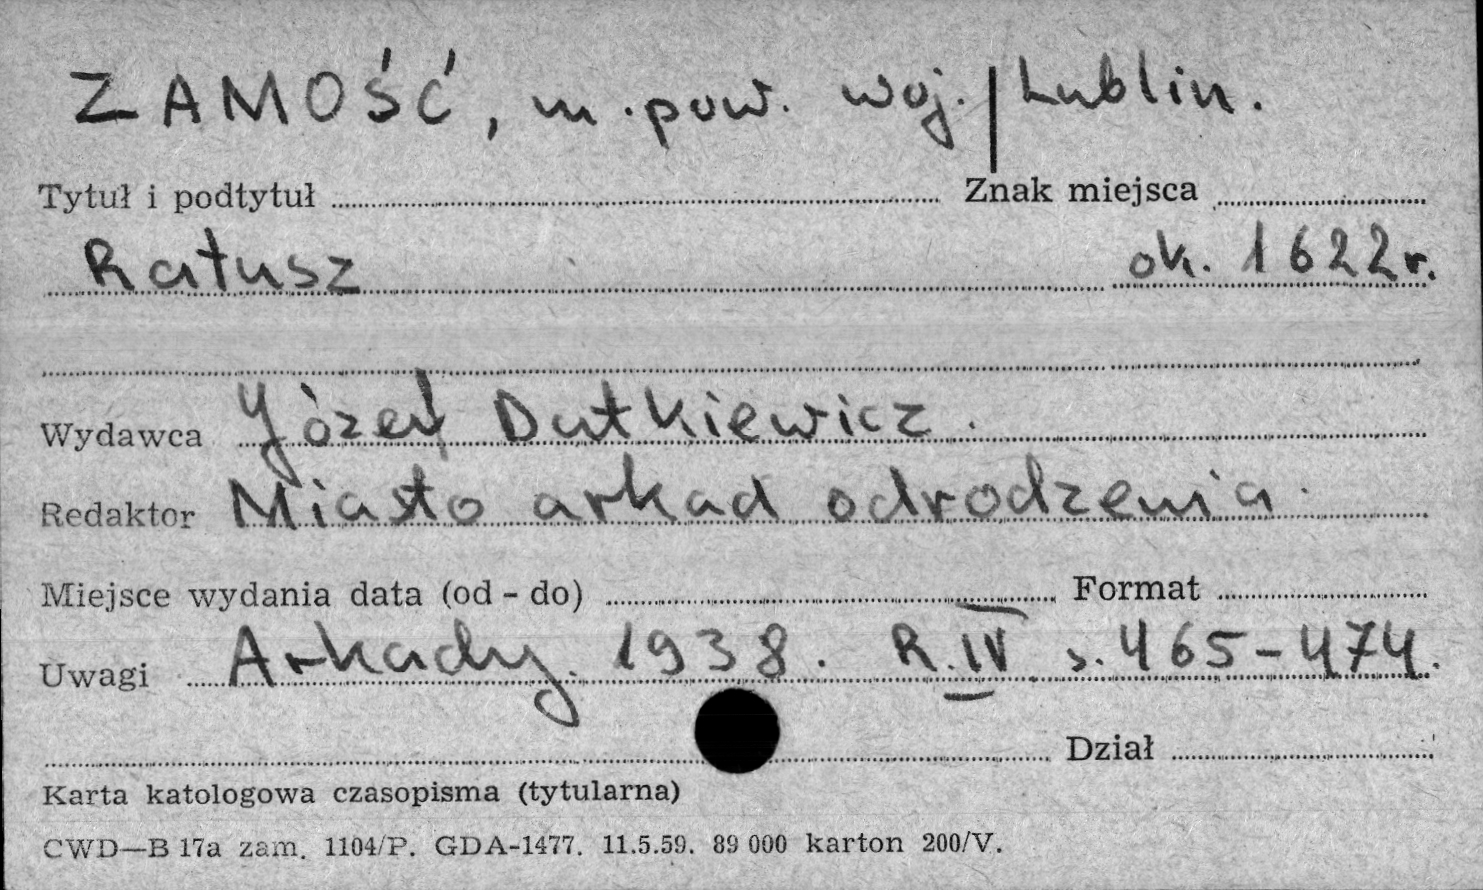 ZAMOŚĆ, m. pow. woj. | Lublin.
Tytuł i podtytuł Znak miejsca
Ratusz ok. 1622 r.
Wydawca Józef Dutkiewicz.
Redaktor Miasto arkad odrodzenia.
Miejsce wydania data (od - do) Format
Uwagi Arkady. 1938. R. IV s. 465-474.
Dział
Karta katologowa czasopisma (tytularna)
CWD—B 17a zam. 1104/P. GDA-1477. 11.5.59. 89 000 karton 200/V.